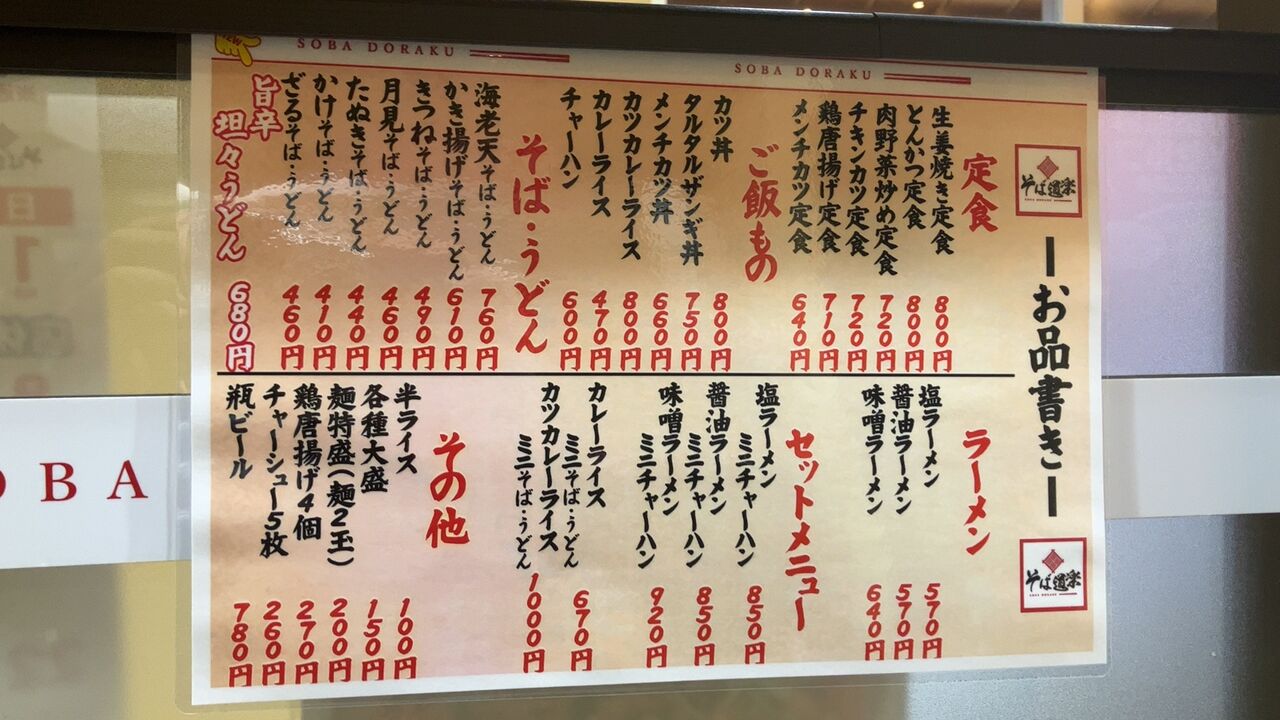 そば道楽
SOBA DORAKU
お品書き
そば道楽
SOBA DORAKU
SOBA DORAKU
定食
生姜焼き定食 800円
とんかつ定食 800円
肉野菜炒め定食 720円
チキンカツ定食 720円
鶏唐揚げ定食 710円
メンチカツ定食 640円
ご飯もの
カツ丼 800円
タルタルザンギ丼 750円
メンチカツ丼 660円
カツカレーライス 800円
カレーライス 470円
チャーハン 600円
SOBA DORAKU
そば・うどん
海老天そば・うどん 760円
かき揚げそば・うどん 610円
きつねそば・うどん 490円
月見そば・うどん 460円
たぬきそば・うどん 440円
かけそば・うどん 410円
ざるそば・うどん 460円
旨辛
坦々うどん 680円
ラーメン
塩ラーメン 570円
醤油ラーメン 570円
味噌ラーメン 640円
セットメニュー
塩ラーメン
ミニチャーハン 850円
醤油ラーメン
ミニチャーハン 850円
味噌ラーメン
ミニチャーハン 920円
カレーライス
ミニそば・うどん 670円
カツカレーライス
ミニそば・うどん 1000円
その他
半ライス 100円
各種大盛 150円
麺特盛(麺2玉) 200円
鶏唐揚げ4個 270円
チャーシュー5枚 260円
瓶ビール 780円
OBA